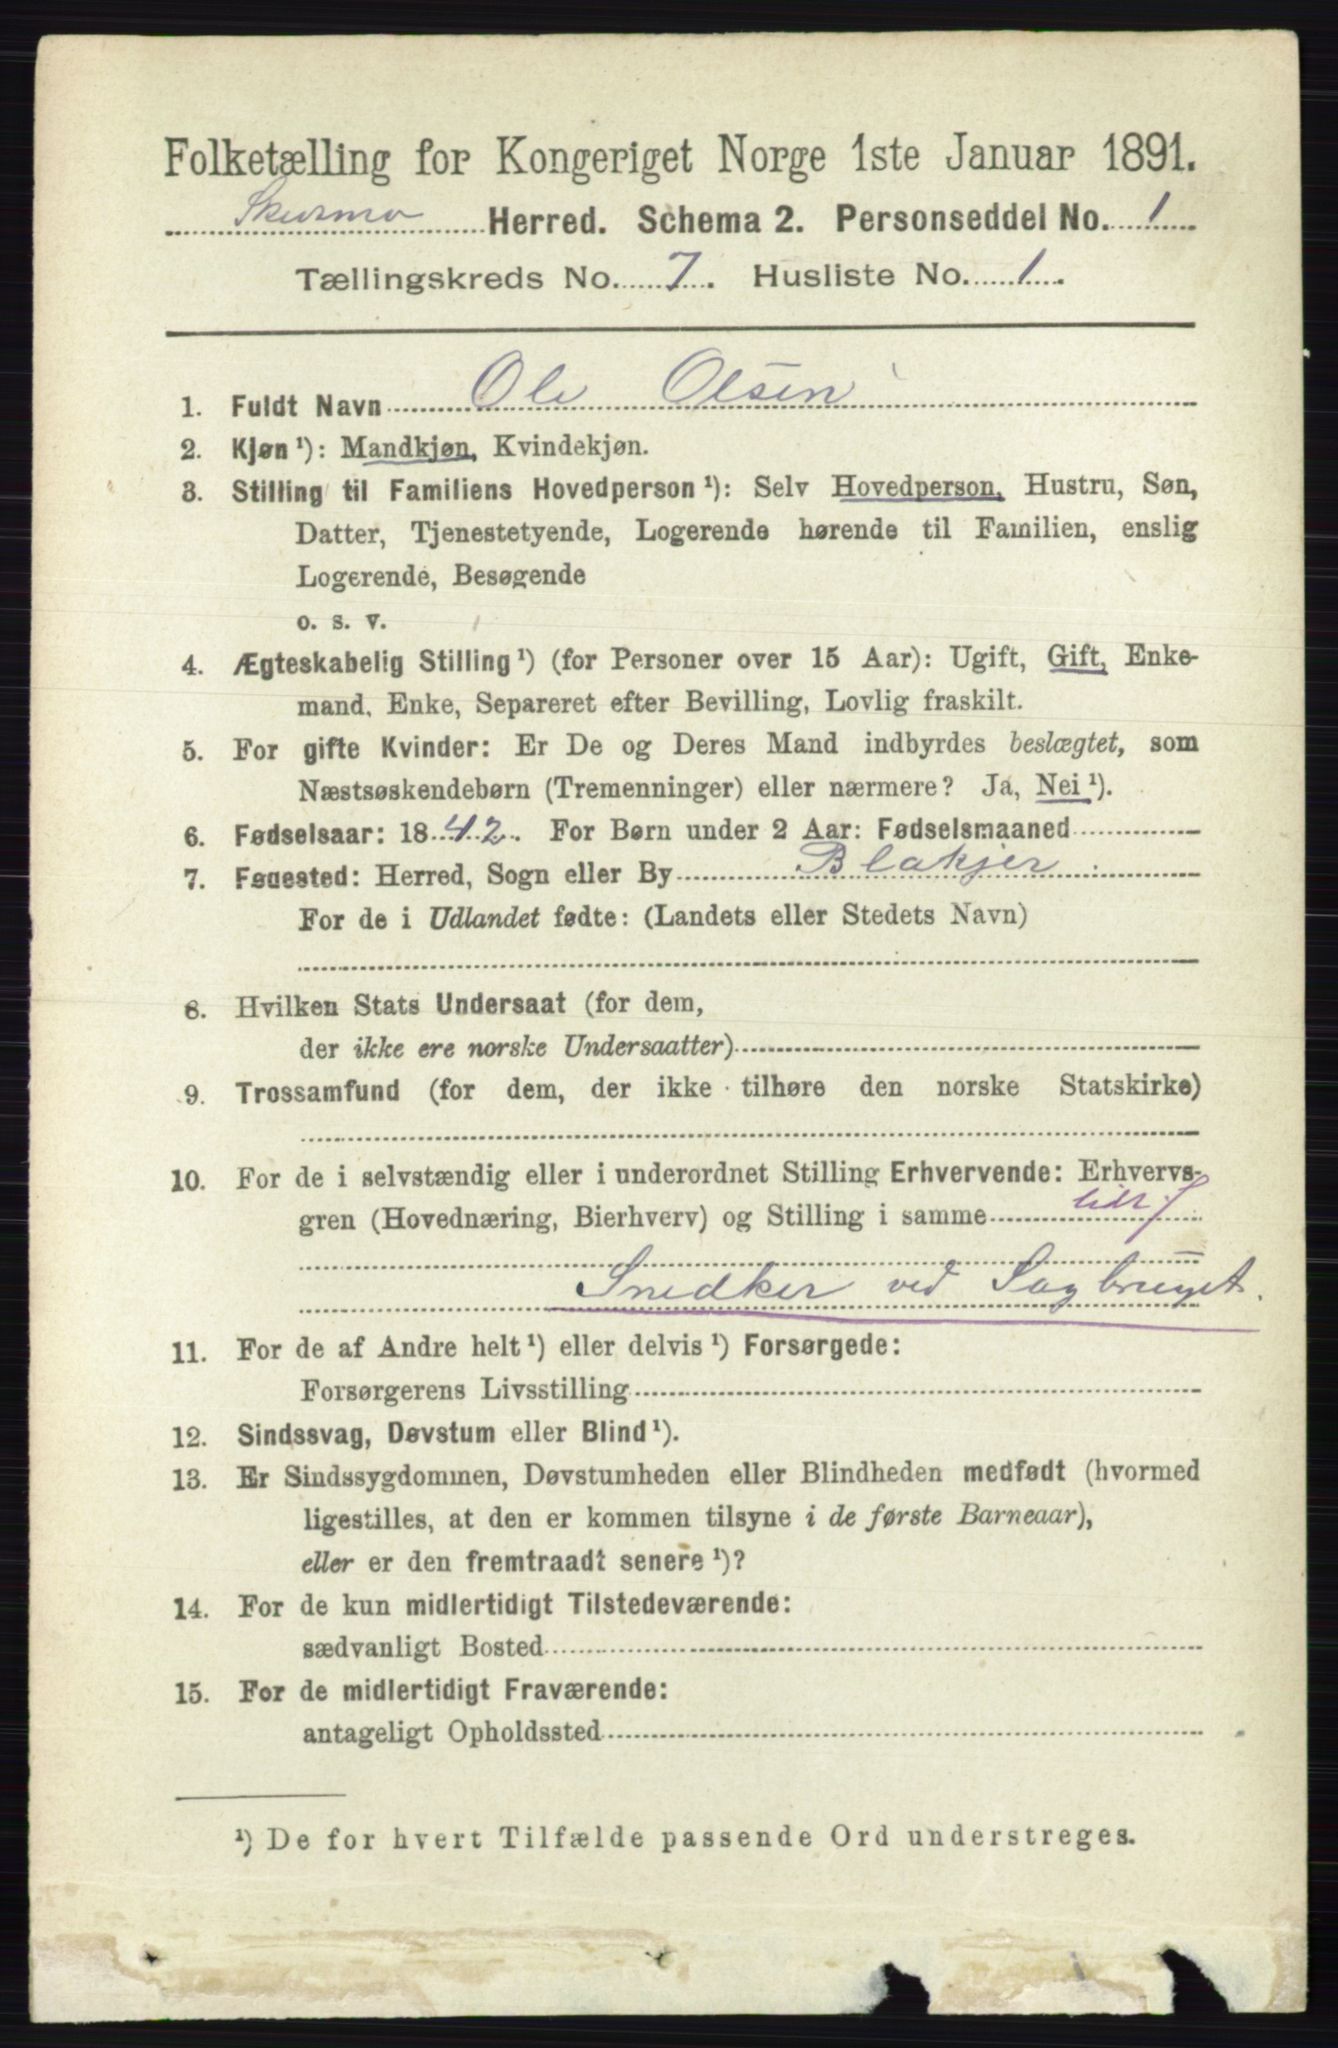 Folketælling for Kongeriget Norge 1ste Januar 1891.
Skursmo Herred. Schema 2. Personseddel No. 1
Tællingskreds No. 7. Husliste No. 1.
1. Fuldt Navn Ole Olsen
2. Kjøn ¹): Mandkjøn, Kvindekjøn.
3. Stilling til Familiens Hovedperson ¹): Selv Hovedperson, Hustru, Søn,
Datter, Tjenestetyende, Logerende hørende til Familien, enslig
Logerende, Besøgende
o. s. v.
4. Ægteskabelig Stilling ¹) (for Personer over 15 Aar): Ugift, Gift, Enke-
mand, Enke, Separeret efter Bevilling, Lovlig fraskilt.
5. For gifte Kvinder: Er De og Deres Mand indbyrdes beslægtet, som
Næstsøskendebørn (Tremenninger) eller nærmere? Ja, Nei ¹).
6. Fødselsaar: 1842. For Børn under 2 Aar: Fødselsmaaned
7. Fødested: Herred, Sogn eller By Blakjer
For de i Udlandet fødte: (Landets eller Stedets Navn)
8. Hvilken Stats Undersaat (for dem,
der ikke ere norske Undersaatter)
9. Trossamfund (for dem, der ikke tilhøre den norske Statskirke)
10. For de i selvstændig eller i underordnet Stilling Erhvervende: Erhvervs-
gren (Hovednæring, Bierhverv) og Stilling i samme
Snedker ved Sagbruget.
11. For de af Andre helt ¹) eller delvis ¹) Forsørgede:
Forsørgerens Livsstilling
12. Sindssvag, Døvstum eller Blind ¹).
13. Er Sindssygdommen, Døvstumheden eller Blindheden medfødt (hvormed
ligestilles, at den er kommen tilsyne i de første Barneaar),
eller er den fremtraadt senere ¹)?
14. For de kun midlertidigt Tilstedeværende:
sædvanligt Bosted
15. For de midlertidigt Fraværende:
antageligt Opholdssted
¹) De for hvert Tilfælde passende Ord understreges.